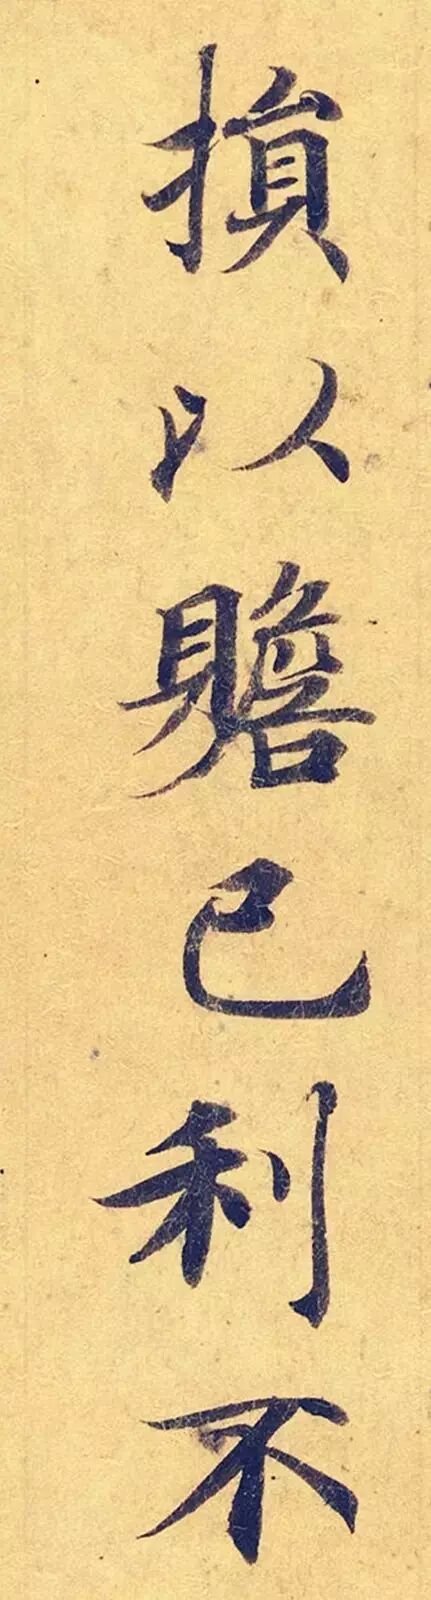 損以贍己利不